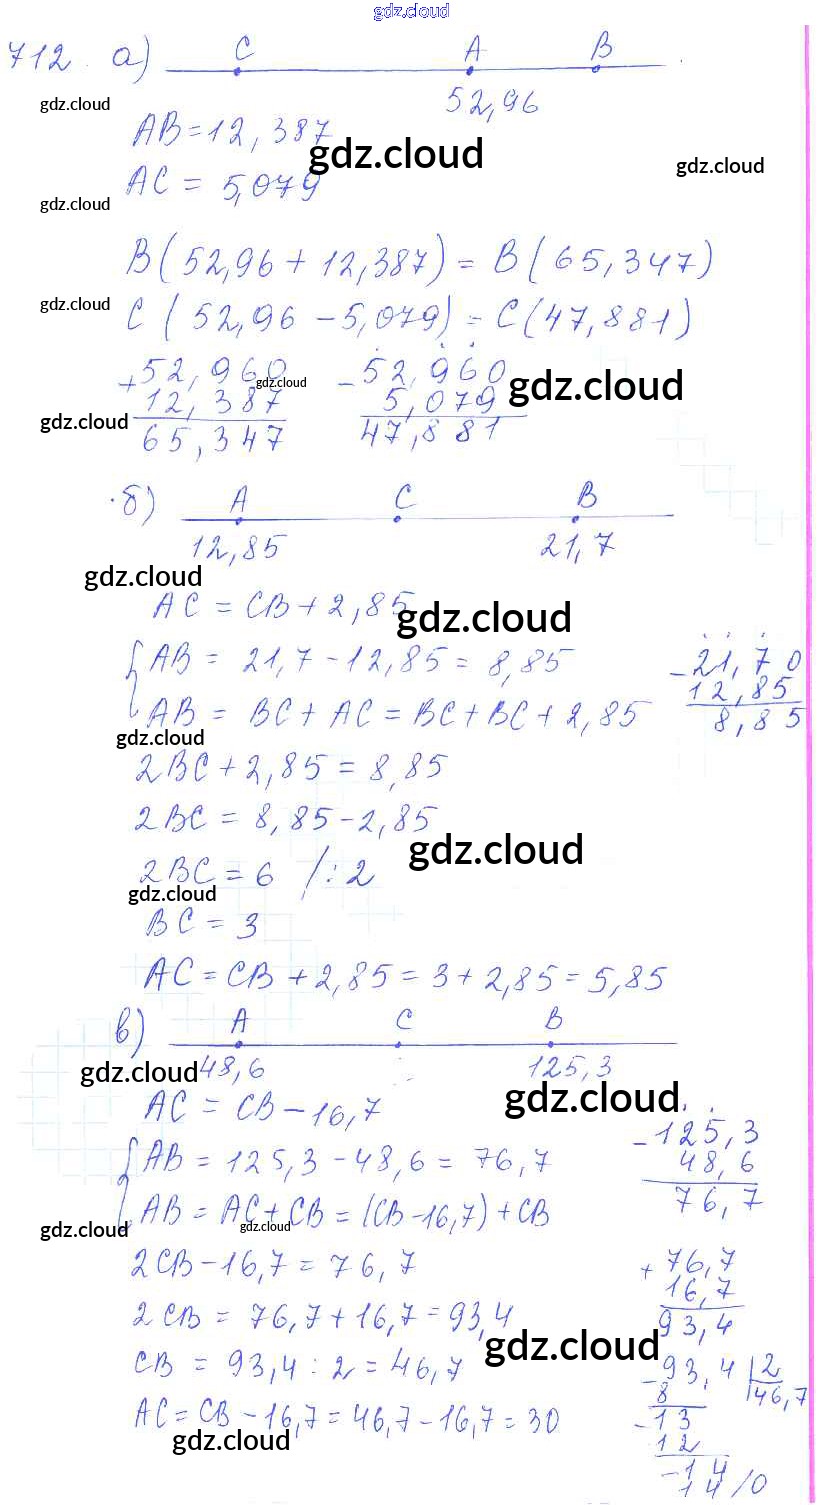 gdz.cloud
712. а) C A B
52,96
gdz.cloud
AB = 12,387
gdz.cloud
gdz.cloud
AC = 5,079
gdz.cloud
B(52,96 + 12,387) = B(65,347)
gdz.cloud
C(52,96 - 5,079) = C(47,881)
+ 52,960 - 52,960
gdz.cloud gdz.cloud
12,387 5,079
gdz.cloud
65,347 47,881
б) A C B
12,85 21,7
gdz.cloud
AC = CB + 2,85
gdz.cloud
{ AB = 21,7 - 12,85 = 8,85 - 21,70
12,85
AB = BC + AC = BC + BC + 2,85 8,85
gdz.cloud
2BC + 2,85 = 8,85
2BC = 8,85 - 2,85
gdz.cloud
2BC = 6 /:2
gdz.cloud
BC = 3
AC = CB + 2,85 = 3 + 2,85 = 5,85
в) A C B
48,6 125,3
gdz.cloud
AC = CB - 16,7
gdz.cloud
- 125,3
{ AB = 125,3 - 48,6 = 76,7 48,6
76,7
AB = AC + CB = (CB - 16,7) + CB
gdz.cloud gdz.cloud
2CB - 16,7 = 76,7 + 76,7
16,7
2CB = 76,7 + 16,7 = 93,4 93,4
gdz.cloud
CB = 93,4 : 2 = 46,7 - 93,4 | 2
8 46,7
AC = CB - 16,7 = 46,7 - 16,7 = 30 - 13
gdz.cloud
12
- 14
14 /0